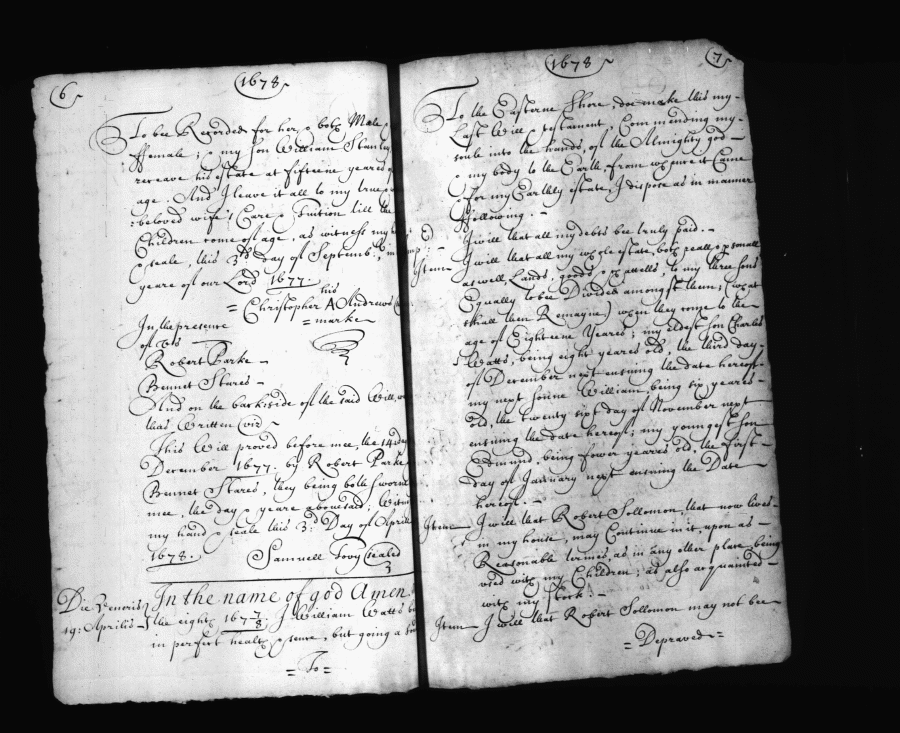 6 1678
To bee Recorded for her & both Male &
ffemale; & my Son William Stanley
receave his estate at fifteene yeares of
age. And I leave it all to my true &
beloved wife's Care & Tuition till the
Children come of age, as witness my
& seale, this 3d day of Septemb.r in
yeare of our Lord 1677.
his
= Christopher A Andrewes
= marke
In the presence
of Us
Robert Parke -
Bennet Stares -
And on the backside of the said Will, w
thus Written (viz)
This Will proved before mee, the 14 day
December 1677. by Robert Parke
Bennet Stares, they being both sworne
mee, the day & yeare abovesaid; Witness
my hand & seale this 3d: Day of Aprill
1678. Samuell Tovy (sealed
Die Veneris In the name of god Amen
19: Aprilis the eight 1677/8, J William Watts be
in perfect health & sence; but going a
= To =
1678 7
To the Easterne Shore, doe make this my
Last Will & testament, Commending my
soule into the hands, of the Almighty god
& my body to the Earth, from whence it Came
& for my Earthly estate, I dispose as in manner
ffollowing. -
I will that all my debts bee truly paid. -
Item I will that all my whole estate, both reall & psonall
as well, Lands, goods & chattells, to my three sons
Equally to bee Divided amongst them; (what
shall then Remayne) when they come to the
age of Eighteene Yeares; my eldest son Charles
Watts, being eight yeares old, the third day
of December next ensuing the date hereof
my next sonne William, being six yeares
old, the twenty sixt day of November next
ensuing the date hereof; my youngest son
Edmund, being fower yeares old, the first
day of January next ensuing the Date
hereof. -
Item I will that Robert Sollomon, that now lives
in my house, may Continue in it upon as
Reasonable termes as in any other place, being
used with my Children; as also acquainted
with my stock: -
Item I will that Robert Sollomon may not bee
= Depraved =